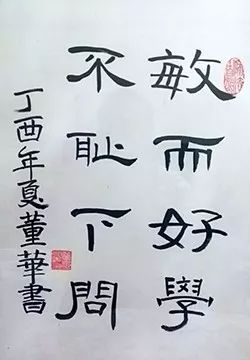 敏而好學
不恥下問
丁酉年夏董華書